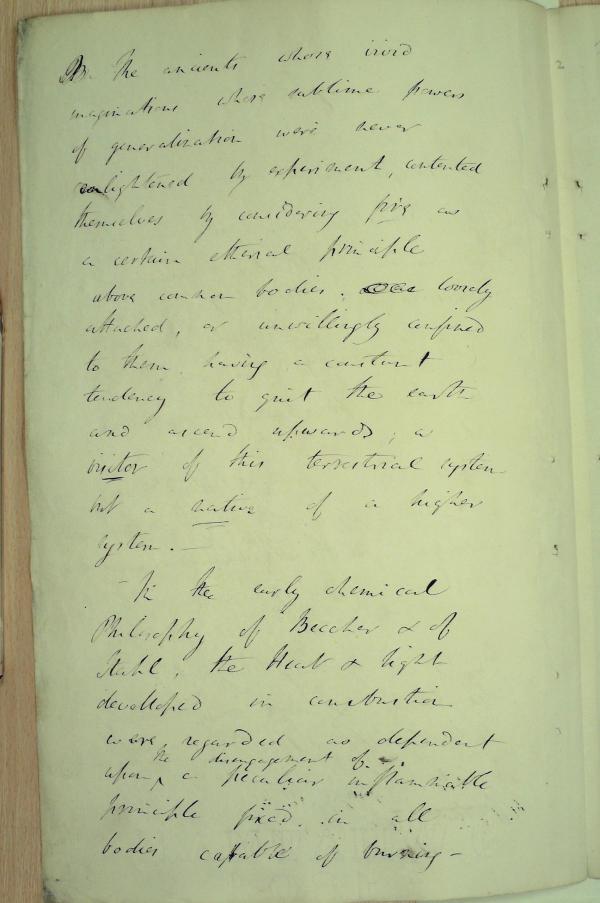 The ancients whose vivid
imaginations whose sublime powers
of generalization were never
enlightened by experiment, contented
themselves by considering fire as
a certain etherial principle
above common bodies. loosely
attached, or unwillingly confined
to them having a constant
tendency to quit the earth
and ascend upwards; a
visitor of this terrestrial system
but a native of a higher
system. —
- In the early chemical
Philosophy of Beccher & of
Stahl, the Heat & light
developed in combustion
were regarded as dependent
the disengagement of
upon ^ a peculiar inflammable
principle fixed in all
bodies capable of burning -